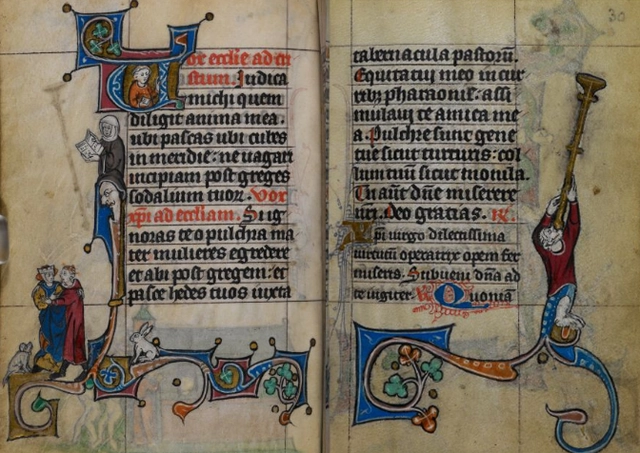 Vox ecclie ad cri
stum. Iudica
michi quem
diligit anima mea.
ubi pascas ubi cubes
in meridie: ne uagari
incipiam post greges
sodalium tuor. Vox
xpi ad eccliam. Si ig
noras te o pulchra ma
ter mulieres egredere
et abi post gregem: et
pasce hedos tuos iuxta
30
tabernacula pastorū.
Equitatui meo in cur
ribꝫ pharaonis: assi
milaui te amica me
a. Pulchre sunt gene
tue sicut turturis: col
lum tuū sicut monilia.
Tu aūt dn̄e miserere
nr̄i. Deo gracias.
xp̄i uirgo dilectissima
uirtutū operatrix opem fer
miseris. Subueni dn̄a ad
te Quoniā